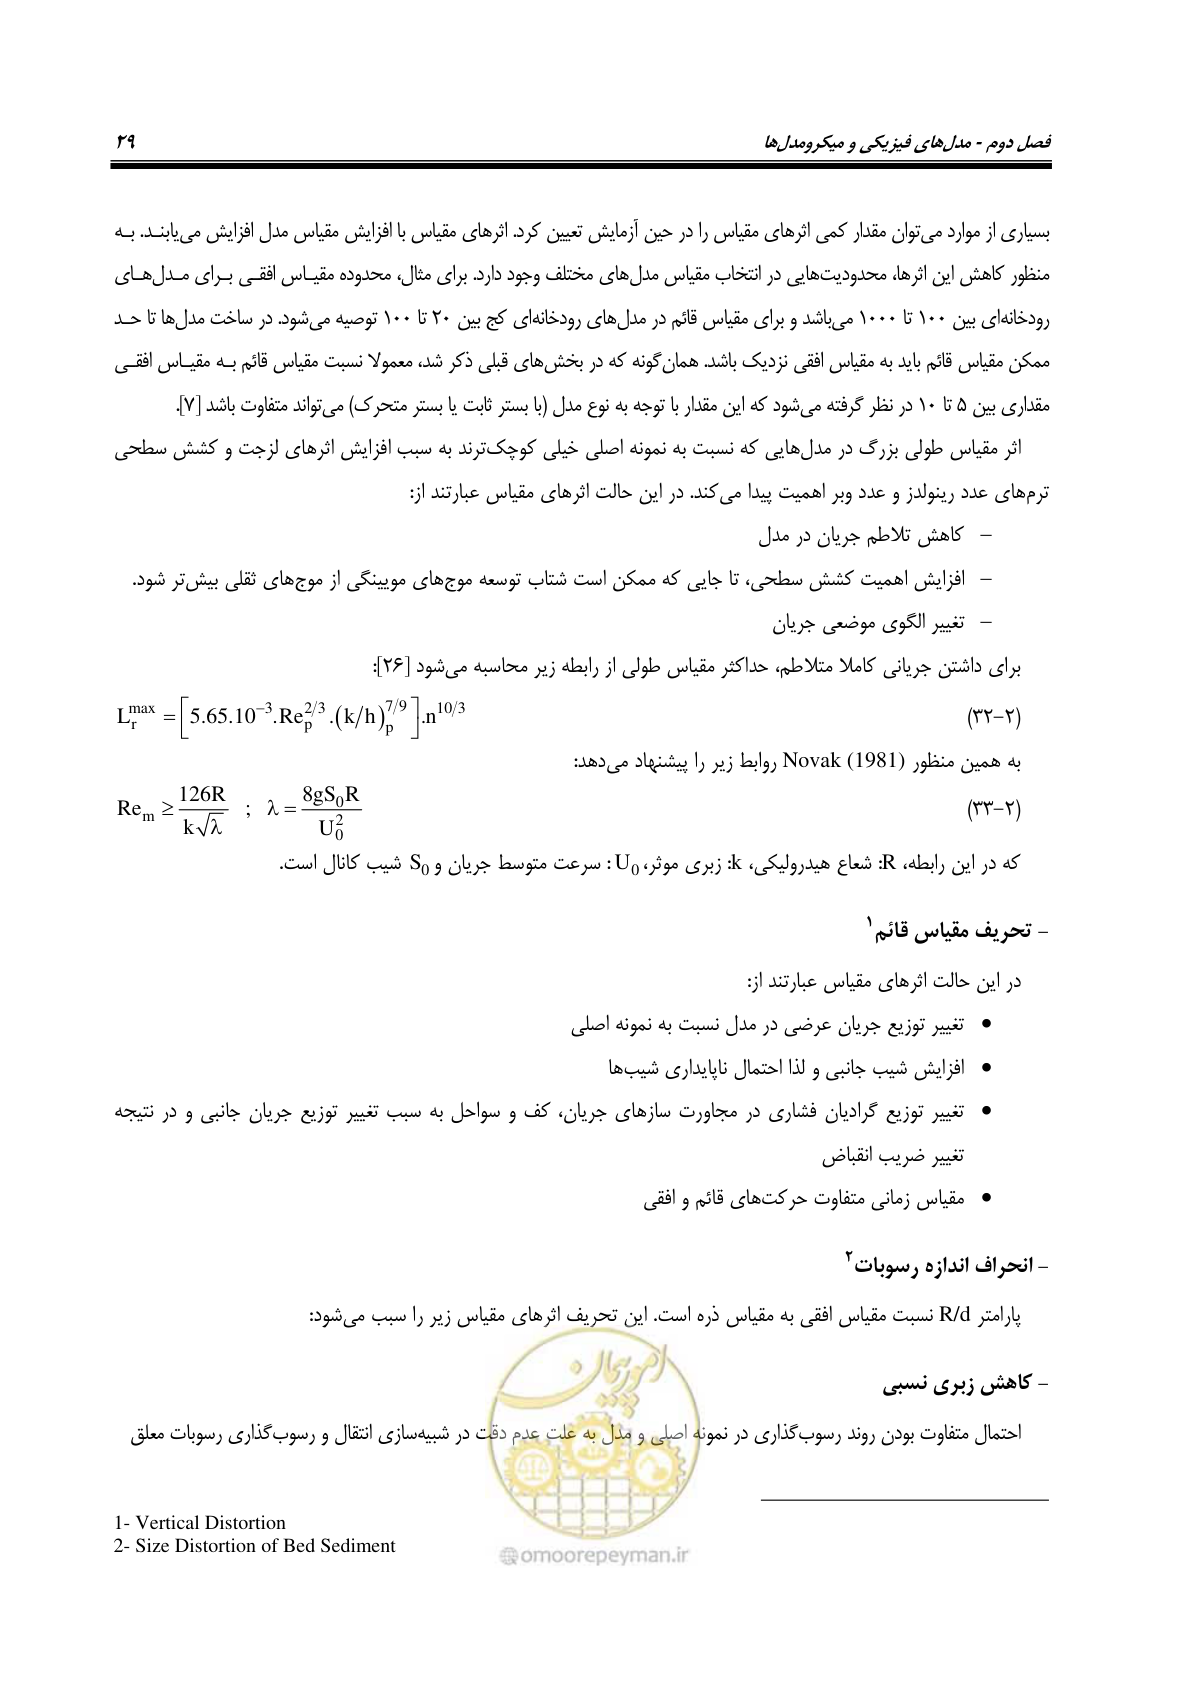 فصل دوم - مدل‌های فیزیکی و میکرومدل‌ها ۲۹
بسیاری از موارد می‌توان مقدار کمی اثرهای مقیاس را در حین آزمایش تعیین کرد. اثرهای مقیاس با افزایش مقیاس مدل افزایش می‌یابنـد. بـه
منظور کاهش این اثرها، محدودیت‌هایی در انتخاب مقیاس مدل‌های مختلف وجود دارد. برای مثال، محدوده مقیـاس افقـی بـرای مـدل‌هـای
رودخانه‌ای بین ۱۰۰ تا ۱۰۰۰ می‌باشد و برای مقیاس قائم در مدل‌های رودخانه‌ای کج بین ۲۰ تا ۱۰۰ توصیه می‌شود. در ساخت مدل‌ها تا حـد
ممکن مقیاس قائم باید به مقیاس افقی نزدیک باشد. همان‌گونه که در بخش‌های قبلی ذکر شد، معمولا نسبت مقیاس قائم بـه مقیـاس افقـی
مقداری بین ۵ تا ۱۰ در نظر گرفته می‌شود که این مقدار با توجه به نوع مدل (با بستر ثابت یا بستر متحرک) می‌تواند متفاوت باشد [۷].
اثر مقیاس طولی بزرگ در مدل‌هایی که نسبت به نمونه اصلی خیلی کوچک‌ترند به سبب افزایش اثرهای لزجت و کشش سطحی
ترم‌های عدد رینولدز و عدد وبر اهمیت پیدا می‌کند. در این حالت اثرهای مقیاس عبارتند از:
– کاهش تلاطم جریان در مدل
– افزایش اهمیت کشش سطحی، تا جایی که ممکن است شتاب توسعه موج‌های مویینگی از موج‌های ثقلی بیش‌تر شود.
– تغییر الگوی موضعی جریان
برای داشتن جریانی کاملا متلاطم، حداکثر مقیاس طولی از رابطه زیر محاسبه می‌شود [۲۶]:
L_r^max = [5.65.10^−3.Re_p^2/3.(k/h)_p^7/9].n^10/3 (۲-۳۲)
به همین منظور Novak (1981) روابط زیر را پیشنهاد می‌دهد:
Re_m ≥ 126R / k√λ ; λ = 8gS_0R / U_0^2 (۲-۳۳)
که در این رابطه، R: شعاع هیدرولیکی، k: زبری موثر، U_0: سرعت متوسط جریان و S_0 شیب کانال است.
- تحریف مقیاس قائم۱
در این حالت اثرهای مقیاس عبارتند از:
• تغییر توزیع جریان عرضی در مدل نسبت به نمونه اصلی
• افزایش شیب جانبی و لذا احتمال ناپایداری شیب‌ها
• تغییر توزیع گرادیان فشاری در مجاورت سازهای جریان، کف و سواحل به سبب تغییر توزیع جریان جانبی و در نتیجه
تغییر ضریب انقباض
• مقیاس زمانی متفاوت حرکت‌های قائم و افقی
- انحراف اندازه رسوبات۲
پارامتر R/d نسبت مقیاس افقی به مقیاس ذره است. این تحریف اثرهای مقیاس زیر را سبب می‌شود:
- کاهش زبری نسبی
احتمال متفاوت بودن روند رسوب‌گذاری در نمونه اصلی و مدل به علت عدم دقت در شبیه‌سازی انتقال و رسوب‌گذاری رسوبات معلق
1- Vertical Distortion
2- Size Distortion of Bed Sediment
امور پیمان
@omoorepeyman.ir